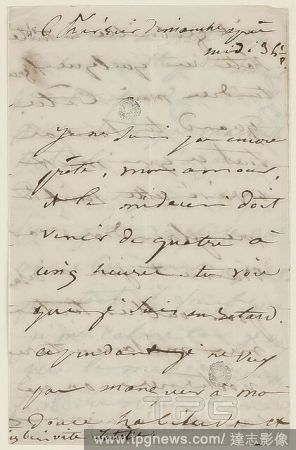 6 février Dimanche après
midi 3h ½
Je ne suis pas encore
prête, mon amour,
et le médecin doit
venir de quatre à
cinq heures tu vois
que je suis en retard
cependant je ne veux
pas manquer à ma
douce habitude et
vite
TPG
www.tpgnews.com / 達志影像